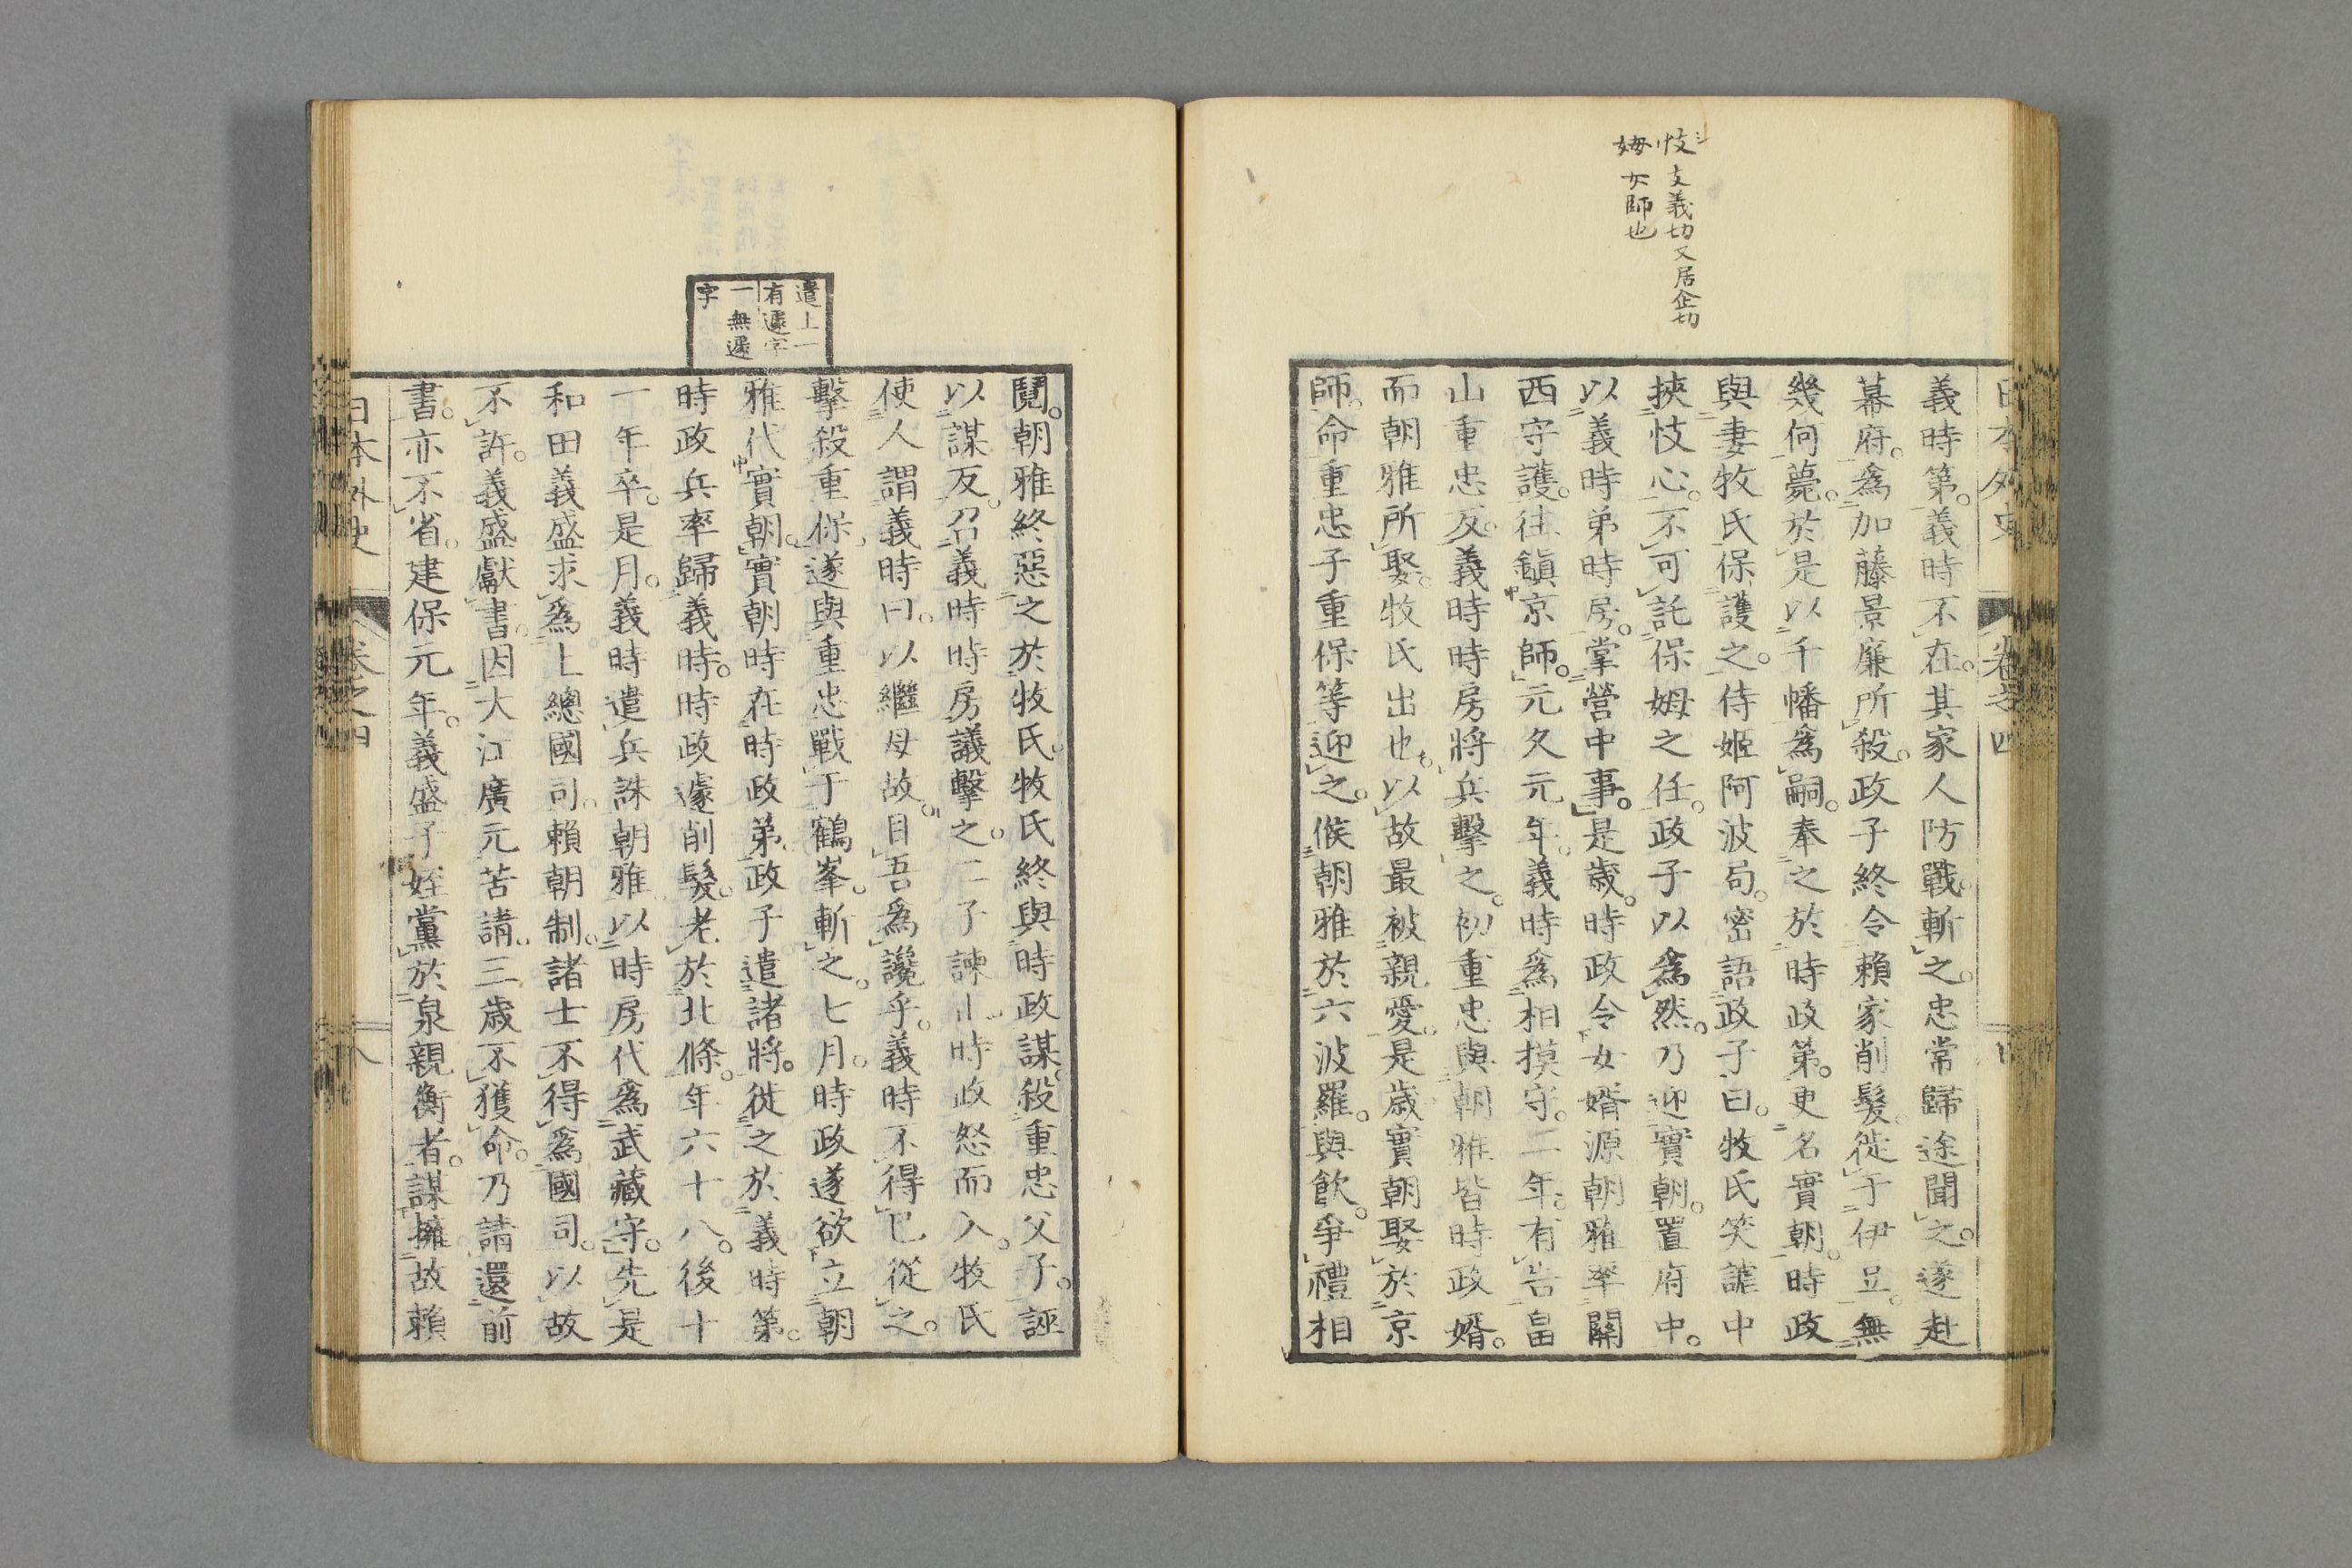 忮 支義切又居企切
姆 女師也
日本外史 卷之四
義時第。義時不在。其家人防戰斬之。忠常歸途聞之。遂赴
幕府。爲加藤景廉所殺。政子終令賴家削髮。徙于伊豆。無
幾何薨。於是以千幡爲嗣。奉之於時政第。更名實朝。時政
與妻牧氏保護之。侍姬阿波局。密語政子曰。牧氏笑謔中
挾忮心。不可託保姆之任。政子以爲然。乃迎實朝。置府中。
以義時弟時房。掌營中事。是歲。時政令女婿源朝雅率關
西守護。往鎭京師。元久元年。義時爲相摸守。二年。有告畠
山重忠反。義時時房將兵擊之。初重忠與朝雅皆時政婿。
而朝雅所娶。牧氏出也。以故最被親愛。是歲實朝娶於京
師。命重忠子重保等迎之。候朝雅於六波羅。與飮。爭禮相
遣上一
有遽字
一無遽
字
鬩。朝雅終惡之於牧氏。牧氏終與時政謀。殺重忠父子。誣
以謀反。召義時時房議擊之。二子諫止。時政怒而入。牧氏
使人謂義時曰。以繼母故。目吾爲讒乎。義時不得已從之。
擊殺重保。遂與重忠戰于鶴峯。斬之。七月。時政遂欲立朝
雅代實朝。實朝時在時政第。政子遣諸將。徙之於義時第。
時政兵率歸義時。時政遽削髮。老於北條。年六十八。後十
一年卒。是月。義時遣兵誅朝雅。以時房代爲武藏守。先是
和田義盛求爲上總國司。賴朝制。諸士不得爲國司。以故
不許。義盛獻書。因大江廣元苦請。三歲不獲命。乃請還前
書。亦不省。建保元年。義盛子姪黨於泉親衡者。謀擁故賴
日本外史 卷之四 八